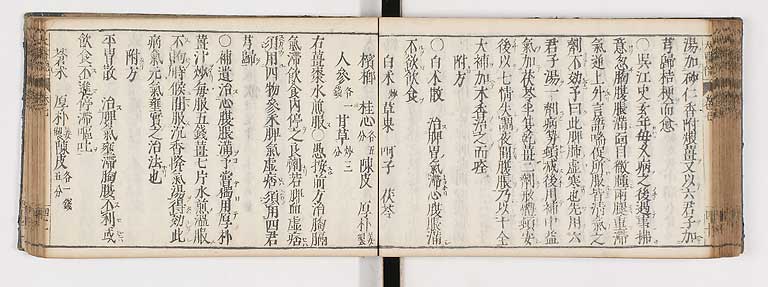 湯加砂仁香附煨薑又以六君子加
芎歸桔梗而愈
○吳江史玄年母久病之後遇事拂
意忽胸腹脹滿面目微腫兩腿重滯
氣逆上升言語喘促所服皆清氣之
劑不效予曰此脾肺虛寒也先用六
君子湯一劑病勢頓減後用補中益
氣加茯苓半夏乾薑二劑形體頓安
後以七情失調夜間腹脹乃以十全
大補加木香治之而痊
附方
○白朮散 治脾胃氣滯心腹脹滿
不欲飲食
白朮炒 草果 訶子 茯苓
檳榔 桂心各五分 陳皮 厚朴薑製
人參各一錢 甘草炒三分
右薑棗水煎服○愚按前方治胸膈
氣滯飲食內停之良劑若脾血虛痞
須用四物參朮脾氣虛痞須用四君
○補遺治心腹脹滿予嘗獨用厚朴
薑汁炒每服五錢薑七片水煎溫服
不拘時候間服沉香降氣湯得効此
病氣元氣壅實之治法也
附方
平胃散 治脾氣壅滯胸腹不利或
飲食不進停滯嘔吐
蒼朮 厚朴薑製 陳皮各一錢五分